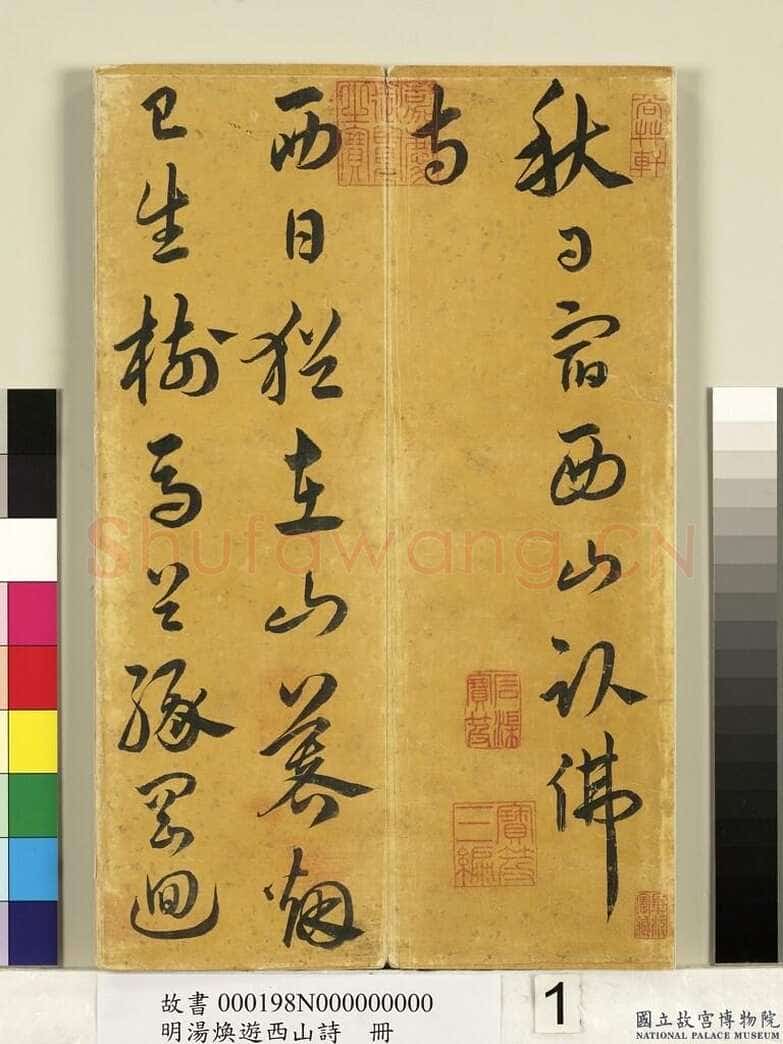 秋日宿西山臥佛
寺
西日猶在山暮烟
已生樹馬緣岡迴
石渠寶笈
寶笈三編
Shufawang.CN
故書 000198N000000000
明湯煥遊西山詩 冊
1
國立故宮博物院
NATIONAL PALACE MUSEUM